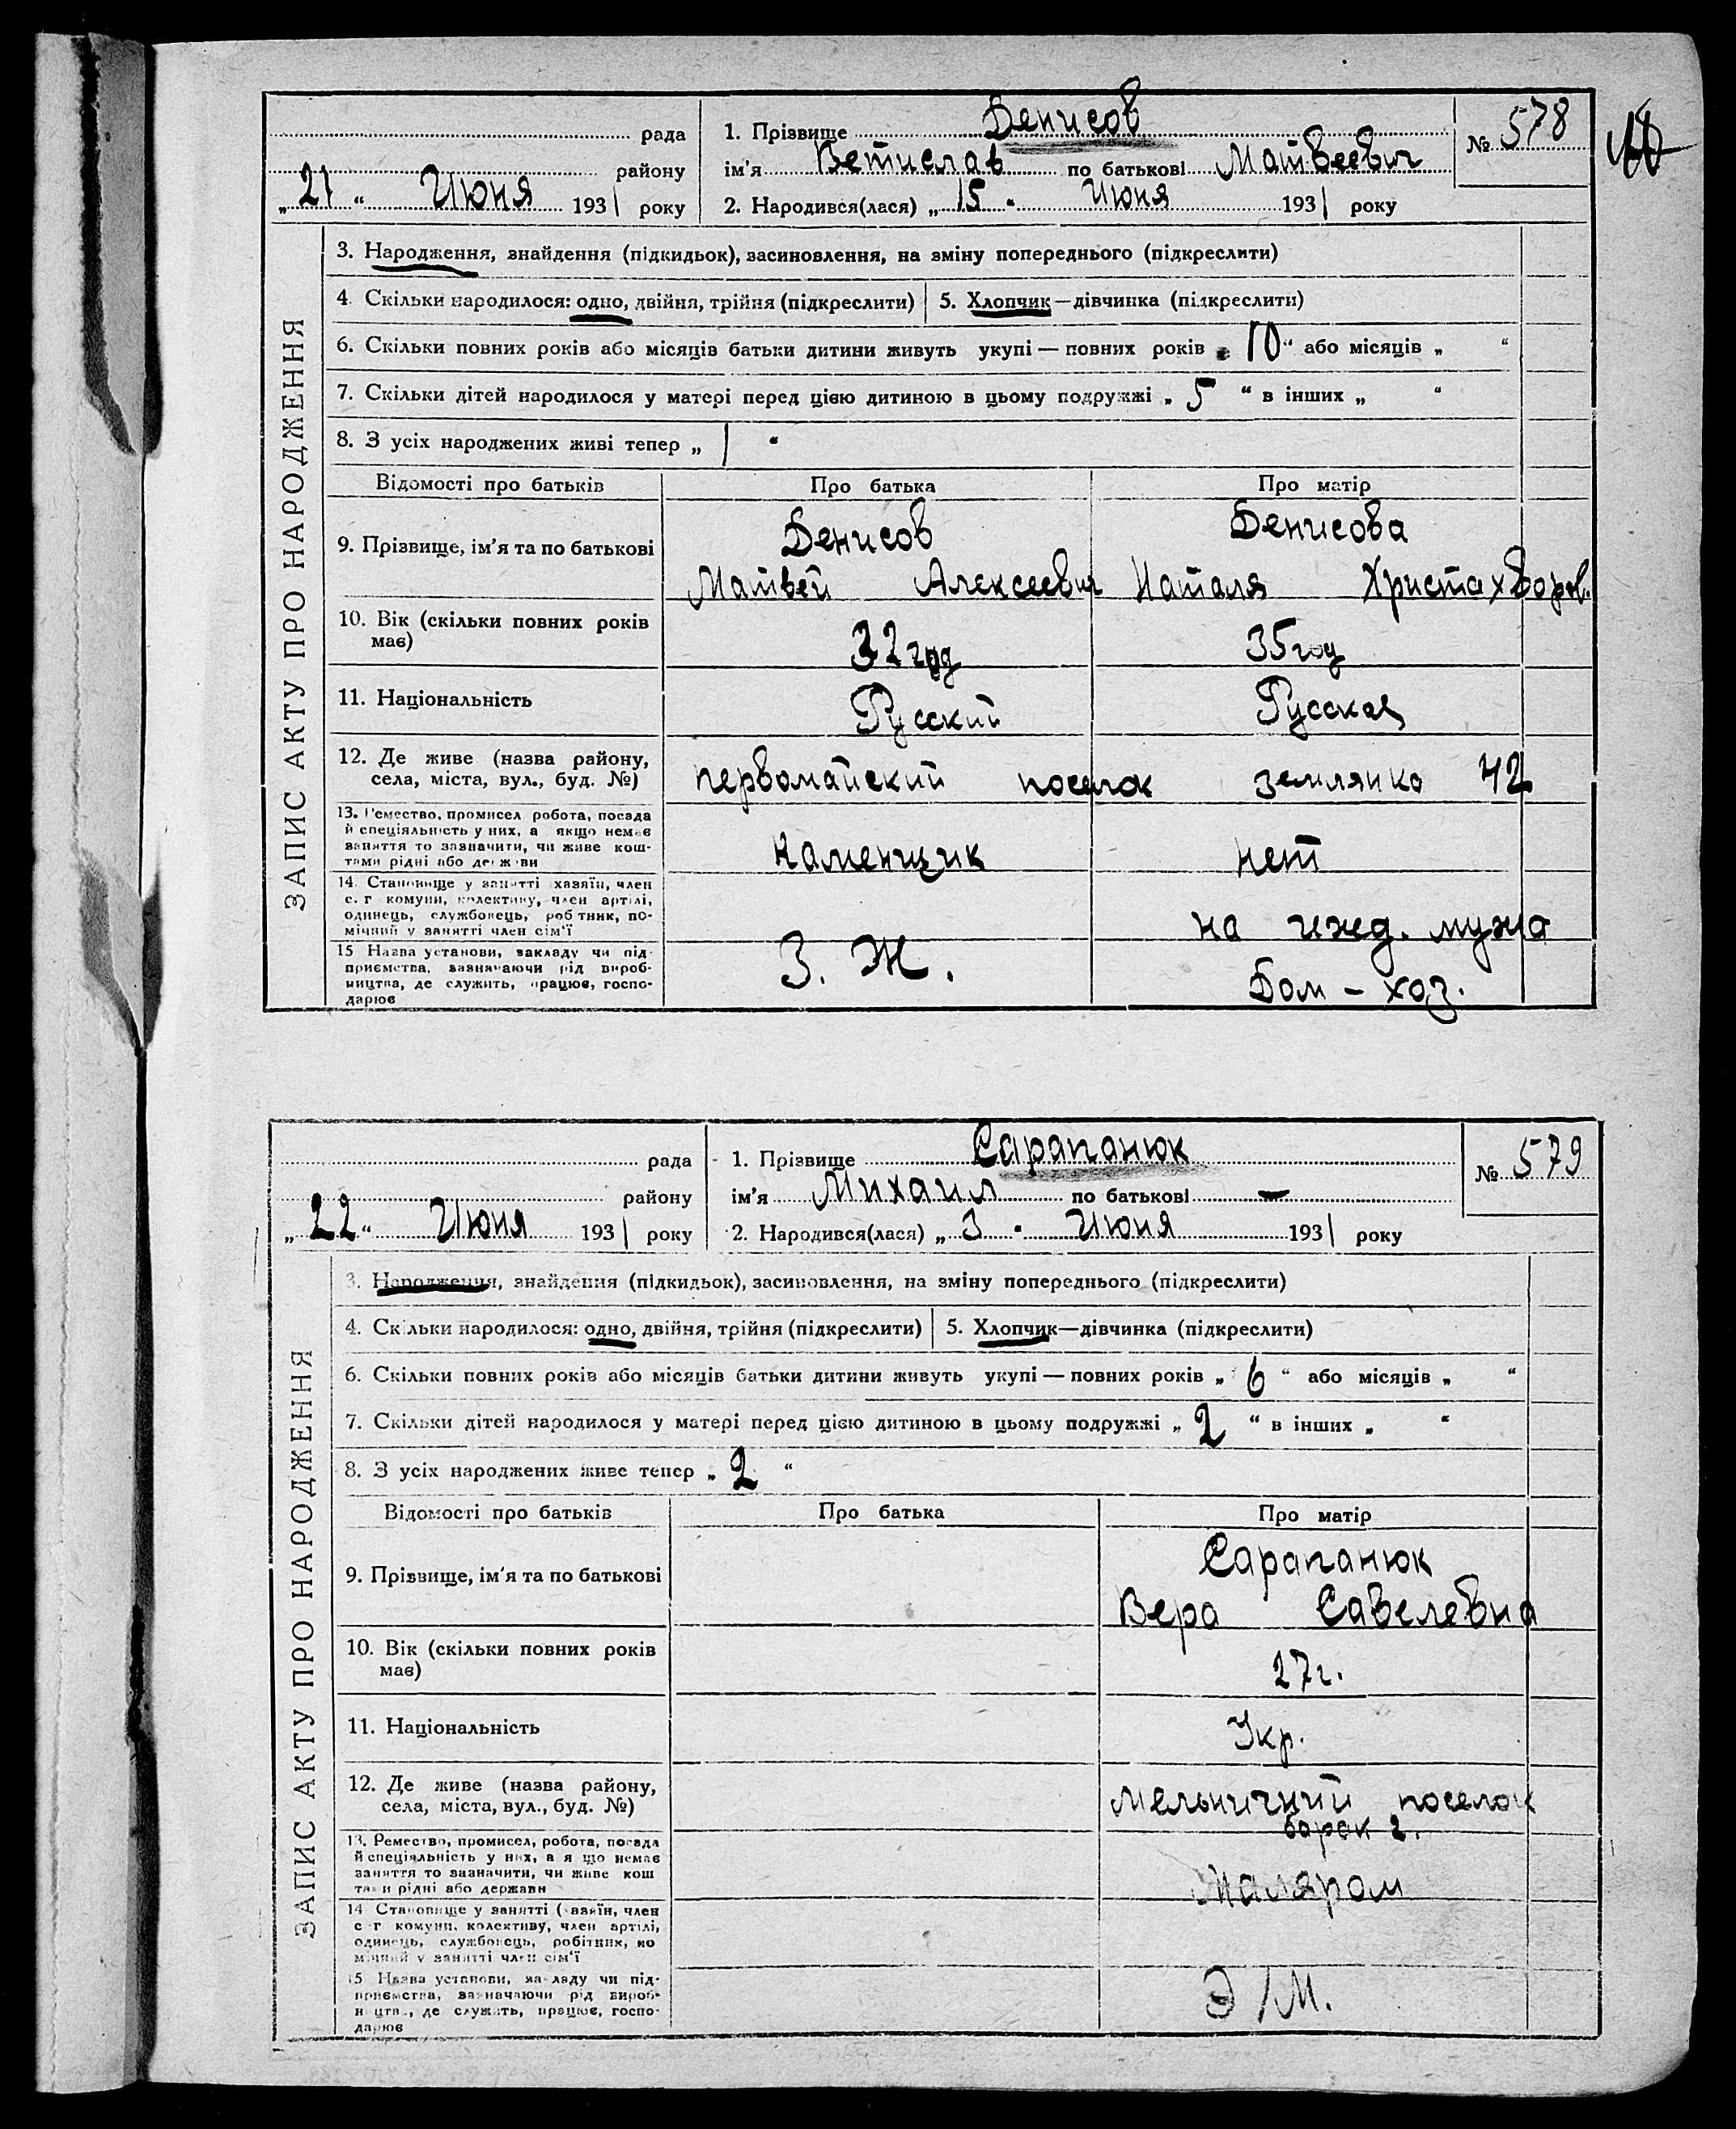 рада
1. Прізвище Денисов
№ 578
району
ім'я Ветислав по батькові Матвеевич
„21“ Июня 1931 року
2. Народився(лася) „15“ Июня 1931 року
ЗАПИС АКТУ ПРО НАРОДЖЕННЯ
3. Народження, знайдення (підкидьок), засиновлення, на зміну попереднього (підкреслити)
4. Скільки народилося: одно, двійня, трійня (підкреслити)
5. Хлопчик—дівчинка (підкреслити)
6. Скільки повних років або місяців батьки дитини живуть укупі — повних років „10“ або місяців „ “
7. Скільки дітей народилося у матері перед цією дитиною в цьому подружжі „5“ в інших „ “
8. З усіх народжених живі тепер „1“
Відомості про батьків
Про батька
Про матір
9. Прізвище, ім'я та по батькові
Денисов
Матвей Алексеевич
Денисова
Наталя Христахворов.
10. Вік (скільки повних років
має)
32 год
35 год
11. Національність
Русский
Русская
12. Де живе (назва району,
села, міста, вул., буд. №)
первомайский поселок землянка 42
13. Ремество, промисел робота, посада
й спеціяльність у них, а якщо немає
заняття то зазначити, чи живе кош-
тами рідні або держави
Каменщик
нет
14. Становище у занятті хазяїн, член
с. г комуни, колективу, член артілі,
одинець, службовець, робтник, по-
мічний у занятті член сім'ї
на ижд. мужа
15 Назва установи, закладу чи під-
приємства, зазначаючи рід вироб-
ництва, де служить, працює, госпо-
дарює
З. Ж.
Дом - хоз.
рада
1. Прізвище Сарапанюк
№ 579
району
ім'я Михаил по батькові —
„22“ Июня 1931 року
2. Народився(лася) „3“ Июня 1931 року
ЗАПИС АКТУ ПРО НАРОДЖЕННЯ
3. Народження, знайдення (підкидьок), засиновлення, на зміну попереднього (підкреслити)
4. Скільки народилося: одно, двійня, трійня (підкреслити)
5. Хлопчик—дівчинка (підкреслити)
6. Скільки повних років або місяців батьки дитини живуть укупі — повних років „6“ або місяців „ “
7. Скільки дітей народилося у матері перед цією дитиною в цьому подружжі „2“ в інших „ “
8. З усіх народжених живе тепер „2“
Відомості про батьків
Про батька
Про матір
9. Прізвище, ім'я та по батькові
Сарапанюк
Вера Савелевна
10. Вік (скільки повних років
має)
27 г.
11. Національність
Укр.
12. Де живе (назва району,
села, міста, вул., буд. №)
мельничний поселок
барак 2.
13. Ремество, промисел, робота, посада
й спеціяльність у них, а якщо немає
заняття то зазначити, чи живе кош
тами рідні або держави
Маляром
14 Становище у занятті (хазяїн, член
с г комуни, колективу, член артілі,
одинець, службовець, робітник, по
мічний у занятті член сім'ї
15 Назва установи, закладу чи під-
приємства, зазначаючи рід вироб-
ництва, де служить, працює, госпо-
дарює
Э/М.